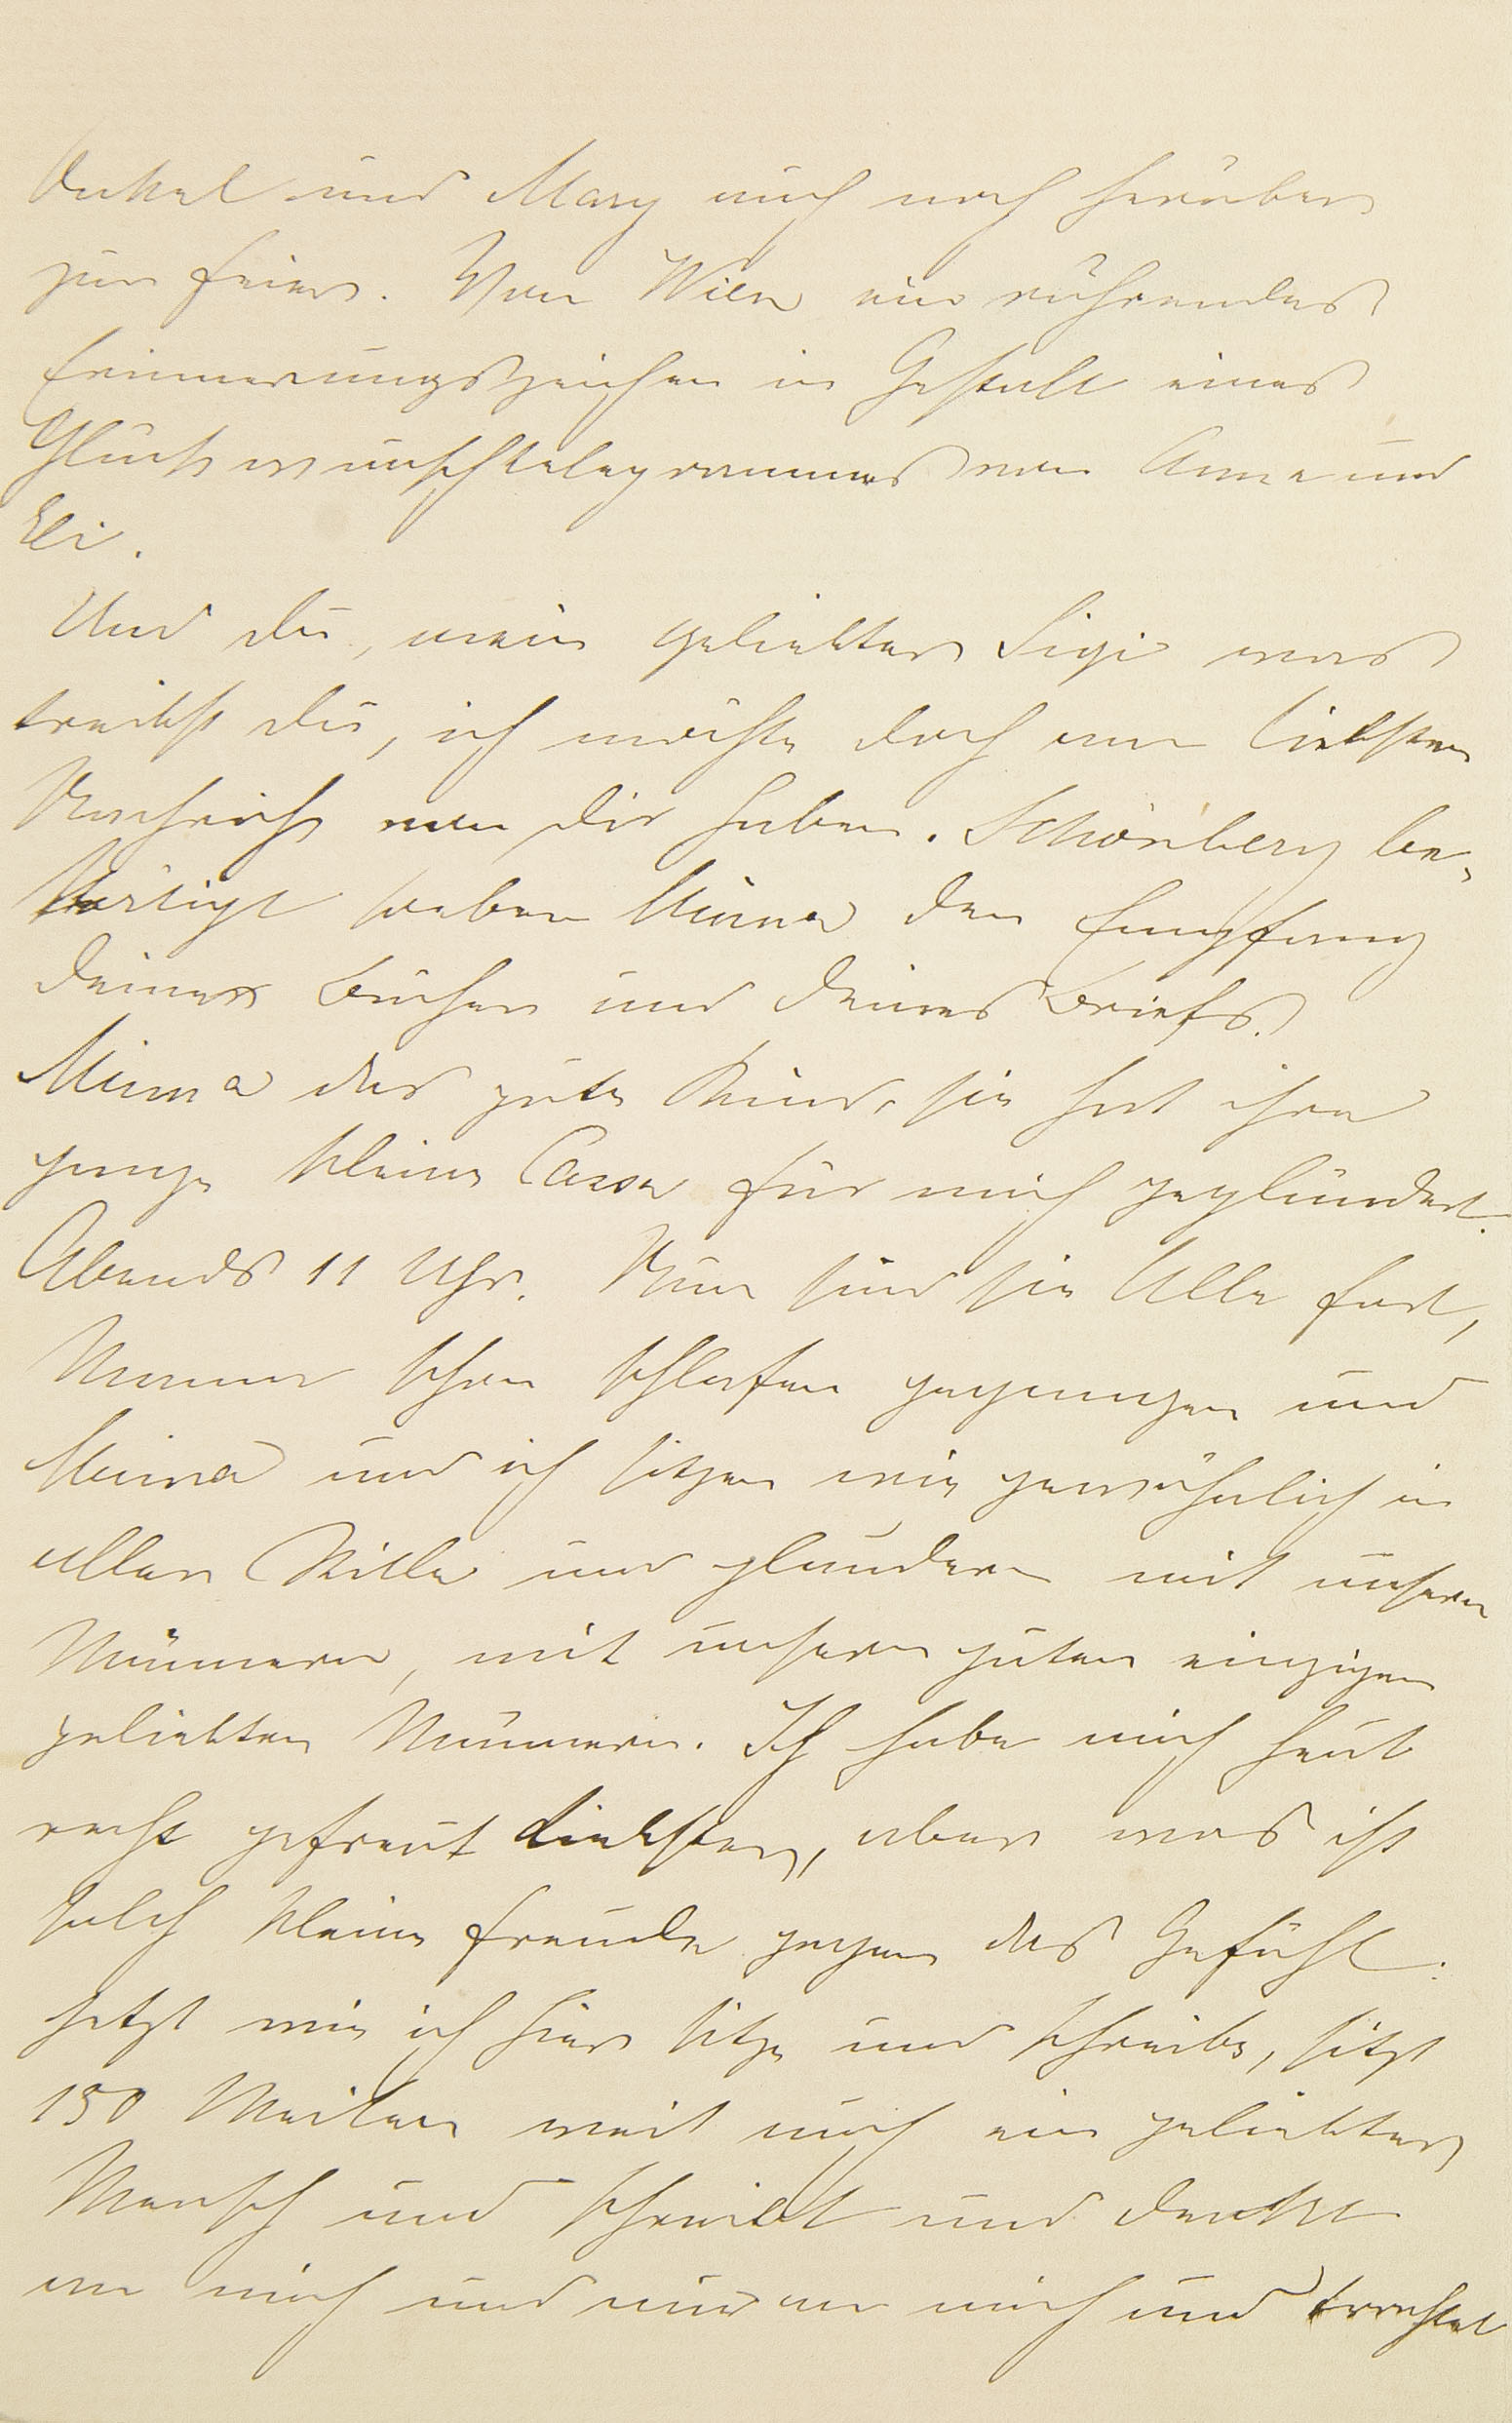 Onkel und Mary auch noch herüber
zur Feier. Von Wien ein rührendes
Erinnerungszeichen in Gestalt eines
Glückwunschtelegrammes von Anna und
Eli.
Und Du, mein geliebter Sigi was
treibst Du, ich möchte doch am liebsten
Nachricht von Dir haben. Schönberg be-
stätigt soeben Minna den Empfang
Deiner Bücher und Deines Briefs.
Minna das gute Kind, sie hat ihre
ganze kleine Cassa für mich geplündert.
Abends 11 Uhr. Nun sind sie Alle fort,
Mama schon schlafen gegangen und
Minna und ich sitzen wie gewöhnlich in
aller Stille und plaudern mit unseren
Männern, mit unseren guten einzigen
geliebten Männern. Ich habe mich heut
recht gefreut Liebster, aber was ist
solch kleine Freude gegen das Gefühl:
jetzt wie ich hier sitze und schreibe, sitzt
150 Meilen weit auch ein geliebter
Mensch und schreibt und denkt
an mich und nur an mich und trachtet